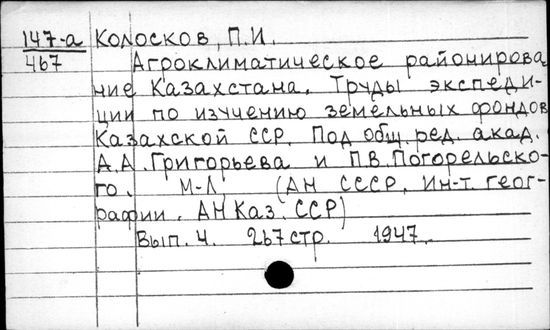 147-а Колосков, П.И.
467 Агроклиматическое районирова
ние Казахстана. Труды экспеди-
ции по изучению земельных фондов
Казахской ССР. Под общ. ред. акад.
А.А. Григорьева и П.В. Погорельско-
го. М-Л, (АН СССР, Ин-т геог-
рафии. АН Каз. ССР)
Вып. 4. 267 стр. 1947.